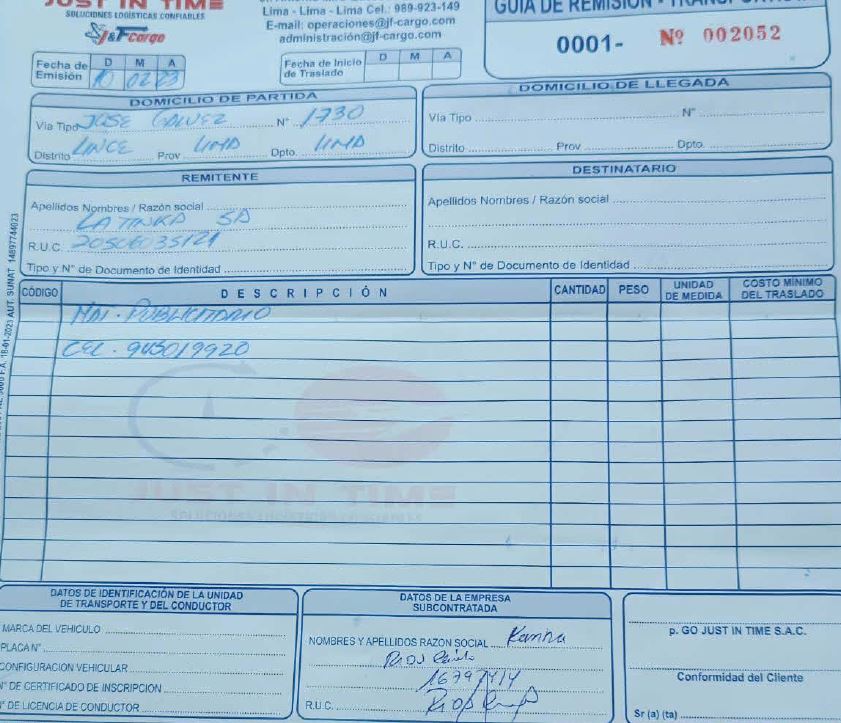 JUST IN TIME
SOLUCIONES LOGÍSTICAS CONFIABLES
J&F Cargo
Lima - Lima - Lima Cel.: 989-923-149
E-mail: operaciones@jf-cargo.com
administración@jf-cargo.com
GUÍA DE REMISIÓN -
0001- Nº 002052
Fecha de Emisión D M A
10 02 23
Fecha de Inicio de Traslado D M A
DOMICILIO DE PARTIDA
Vía Tipo JOSE GALVEZ N° 1730
Distrito LINCE Prov LIMA Dpto. LIMA
DOMICILIO DE LLEGADA
Vía Tipo N°
Distrito Prov. Dpto.
REMITENTE
Apellidos Nombres / Razón social
LA TINKA SA
R.U.C. 20506035121
Tipo y N° de Documento de Identidad
DESTINATARIO
Apellidos Nombres / Razón social
R.U.C.
Tipo y N° de Documento de Identidad
CÓDIGO DESCRIPCIÓN CANTIDAD PESO UNIDAD DE MEDIDA COSTO MÍNIMO DEL TRASLADO
PUBLICITARIO
CEL. 945019920
JUST IN TIME
SOLUCIONES LOGISTICAS CONFIABLES
18-01-2023 AUT. SUNAT 14897744023
DATOS DE IDENTIFICACIÓN DE LA UNIDAD
DE TRANSPORTE Y DEL CONDUCTOR
MARCA DEL VEHICULO
PLACA N°
CONFIGURACIÓN VEHICULAR
N° DE CERTIFICADO DE INSCRIPCIÓN
N° DE LICENCIA DE CONDUCTOR
DATOS DE LA EMPRESA
SUBCONTRATADA
NOMBRES Y APELLIDOS RAZON SOCIAL Karina
Rios
R.U.C.
p. GO JUST IN TIME S.A.C.
Conformidad del Cliente
Sr (a) (ta)